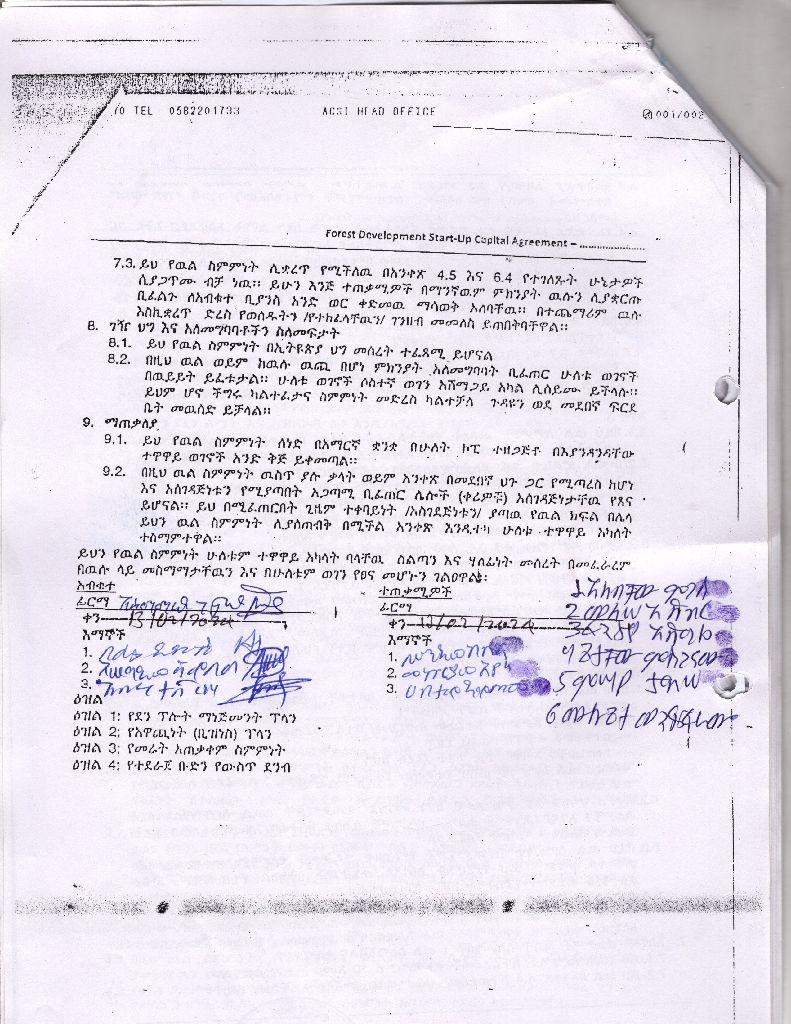 TEL 0582201733 ACSI HEAD OFFICE 001/002
Forest Development Start-Up Capital Agreement – ........................
7.3. ይህ የዉል ስምምነት ሊቋረጥ የሚችለዉ በአንቀጽ 4.5 እና 6.4 የተገለጹት ሁኔታዎች
ሲያጋጥሙ ብቻ ነዉ፡፡ ይሁን እንጅ ተጠቃሚዎች በማንኛዉም ምክንያት ዉሉን ሊያቋርጡ
ቢፈልጉ ለአብቁተ ቢያንስ አንድ ወር ቀድመዉ ማሳወቅ አለባቸዉ፡፡ በተጨማሪም ዉሉ
እስኪቋረጥ ድረስ የወሰዱትን /የተከፈላቸዉን/ ገንዘብ መመለስ ይጠበቅባቸዋል፡፡
8. ገዥ ህግ እና አለመግባባቶችን ስለመፍታት
8.1. ይህ የዉል ስምምነት በኢትዮጵያ ህግ መሰረት ተፈጻሚ ይሆናል
8.2. በዚህ ዉል ወይም ከዉሉ ዉጪ በሆነ ምክንያት አለመግባባት ቢፈጠር ሁለቱ ወገኖች
በዉይይት ይፈቱታል፡፡ ሁለቱ ወገኖች ሶስተኛ ወገን አሸማጋይ አካል ሊሰይሙ ይችላሉ፡፡
ይህም ሆኖ ችግሩ ካልተፈታና ስምምነት መድረስ ካልተቻለ ጉዳዩን ወደ መደበኛ ፍርድ
ቤት መዉሰድ ይቻላል፡፡
9. ማጠቃለያ
9.1. ይህ የዉል ስምምነት ሰነድ በአማርኛ ቋንቋ በሁለት ኮፒ ተዘጋጅቶ በእያንዳንዳቸው
ተዋዋይ ወገኖች አንድ ቅጅ ይቀመጣል፡፡
9.2. በዚህ ዉል ስምምነት ዉስጥ ያሉ ቃላት ወይም አንቀጽ በመደበኛ ህጉ ጋር የሚጣረስ ከሆነ
እና አስገዳጅነቱን የሚያጣበት አጋጣሚ ቢፈጠር ሌሎች (ቀሪዎቹ) አስገዳጅነታቸዉ የጸና
ይሆናል፡፡ ይህ በሚፈጠርበት ጊዜም ተቀባይነት /አስገደጅነቱን/ ያጣዉ የዉል ክፍል በሌላ
ይህን ዉል ስምምነት ሊያስጠብቅ በሚችል አንቀጽ እንዲተካ ሁለቱ ተዋዋይ አካላት
ተስማምተዋል፡፡
ይህን የዉል ስምምነት ሁለቱም ተዋዋይ አካላት ባላቸዉ ስልጣን እና ሃላፊነት መሰረት በመፈራረም
በዉሉ ላይ መስማማታቸዉን እና በሁለቱም ወገን የፀና መሆኑን ገልፀዋል፡
አብቁተ ተጠቃሚዎች
ፊርማ ፊርማ
ቀን 13/02/2024 ቀን 13/02/2024
እማኞች እማኞች
1. 1.
2. 2.
3. 3.
ዕዝል
ዕዝል 1: የደን ፕሎት ማነጅመንት ፕላን
ዕዝል 2: የአዋጪነት (ቢዝነስ) ፕላን
ዕዝል 3: የመሬት አጠቃቀም ስምምነት
ዕዝል 4: የተደራጀ ቡድን የውስጥ ደንብ